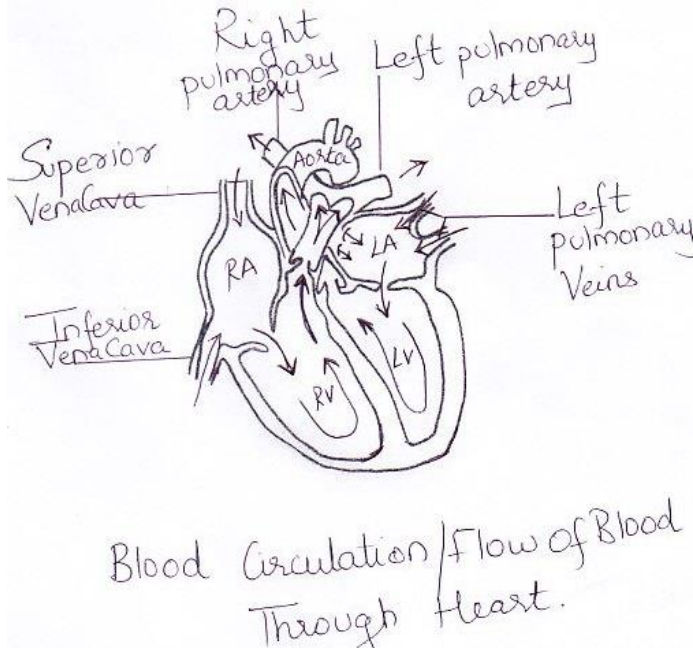 Right
pulmonary
artery
Left pulmonary
artery
Superior
VenaCava
Aorta
Left
pulmonary
Veins
LA
RA
Inferior
VenaCava
LV
RV
Blood Circulation/Flow of Blood
Through Heart.